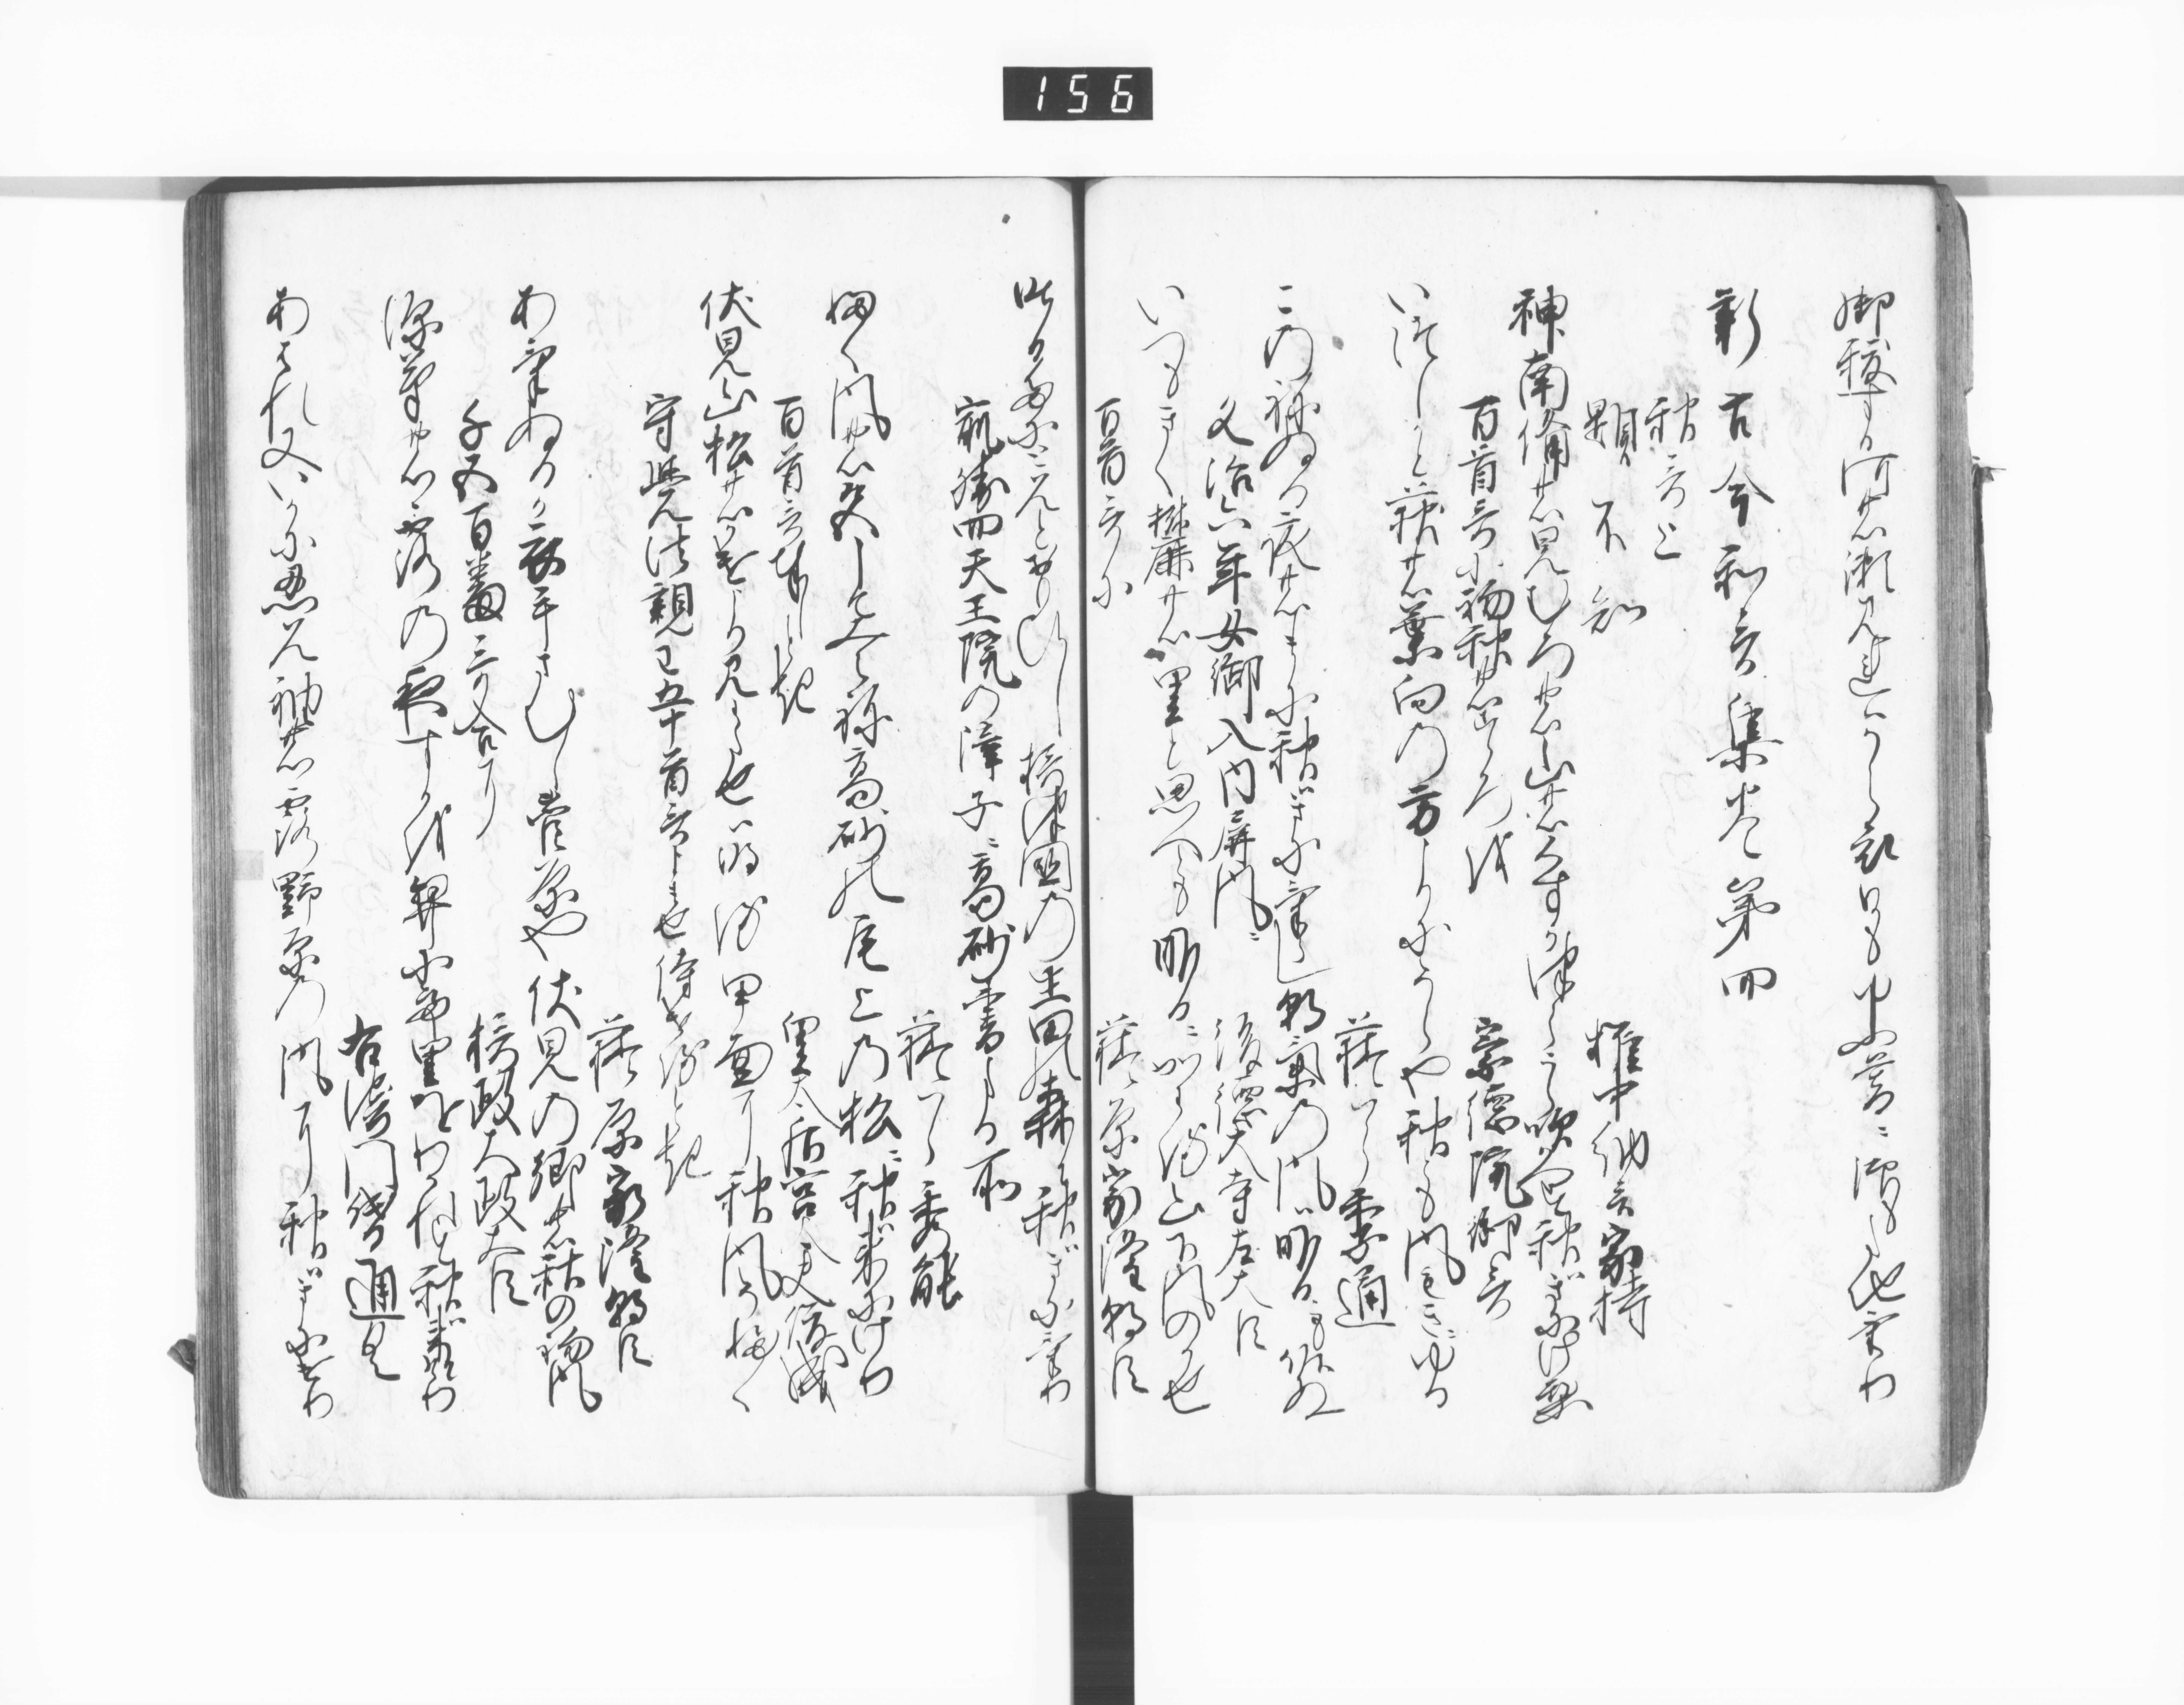 156
御禊する河せの瀬見ればから衣日も夕暮に浪ぞ立ちける
新古今和歌集巻第四
秋哥上
題不知
権中納言家持
神南備の見むろの山のくずかつらうら吹返す秋ぞきにけり
百首哥に初秋の心を
崇徳院御哥
いつしかと荻の葉向の方よりにそゝや秋とも風もきこゆる
藤原季通
この祢ぬる夜のまに秋ぞきにけらし朝気の風ぞ昨日にも似ぬ
文治六年女御入内屏風に
後徳大寺左大臣
いつもきく麓の里と思へども昨日にかはる山下風の音
百首哥に
藤原家隆朝臣
昨日だにとはんとおもひし接津国の生田の森に秋ぞきにけり
最勝四天王院の障子に高砂書たる所
藤原秀能
吹く風の色こそみえね高砂の尾上の松に秋ぞ来にけり
百首哥奉りし時
皇太后宮大夫俊成
伏見山松の陰より見わたせば明る田面に秋風ぞ吹く
守覚法親王五十首哥よませ侍ける時
藤原家隆朝臣
あけぬるか衣手さむし菅原や伏見の郷の秋の初風
千五百番哥合に
摂政太政大臣
深草の露のよすがを契にて里をばかれず秋は来にけり
右衛門督通具
あはれ又いかに忍ばん袖の露野原の風に秋ぞきにけり